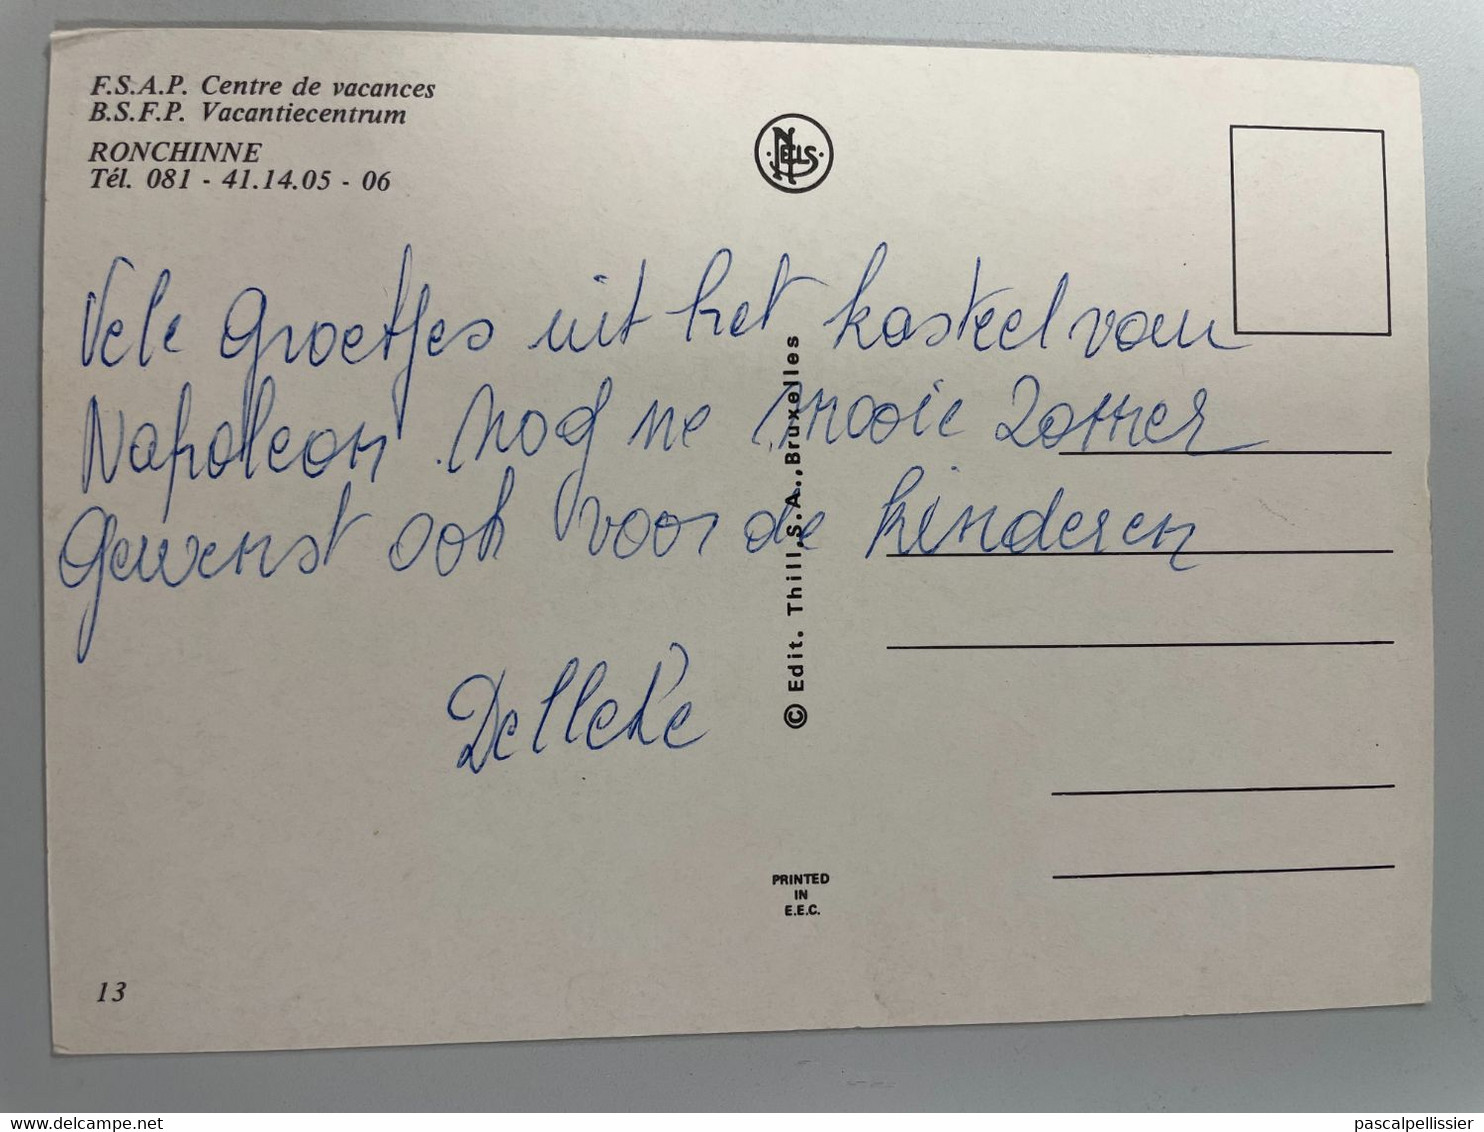 F.S.A.P. Centre de vacances
B.S.F.P. Vacantiecentrum
RONCHINNE
Tél. 081 - 41.14.05 - 06
NELS
Vele Groetjes uit het kasteel van
Napoleon nog ne mooie zomer
gewenst ook voor de kinderen
Delleke
© Edit. Thill, S.A., Bruxelles
PRINTED
IN
E.E.C.
13
www.delcampe.net
pascalpellissier